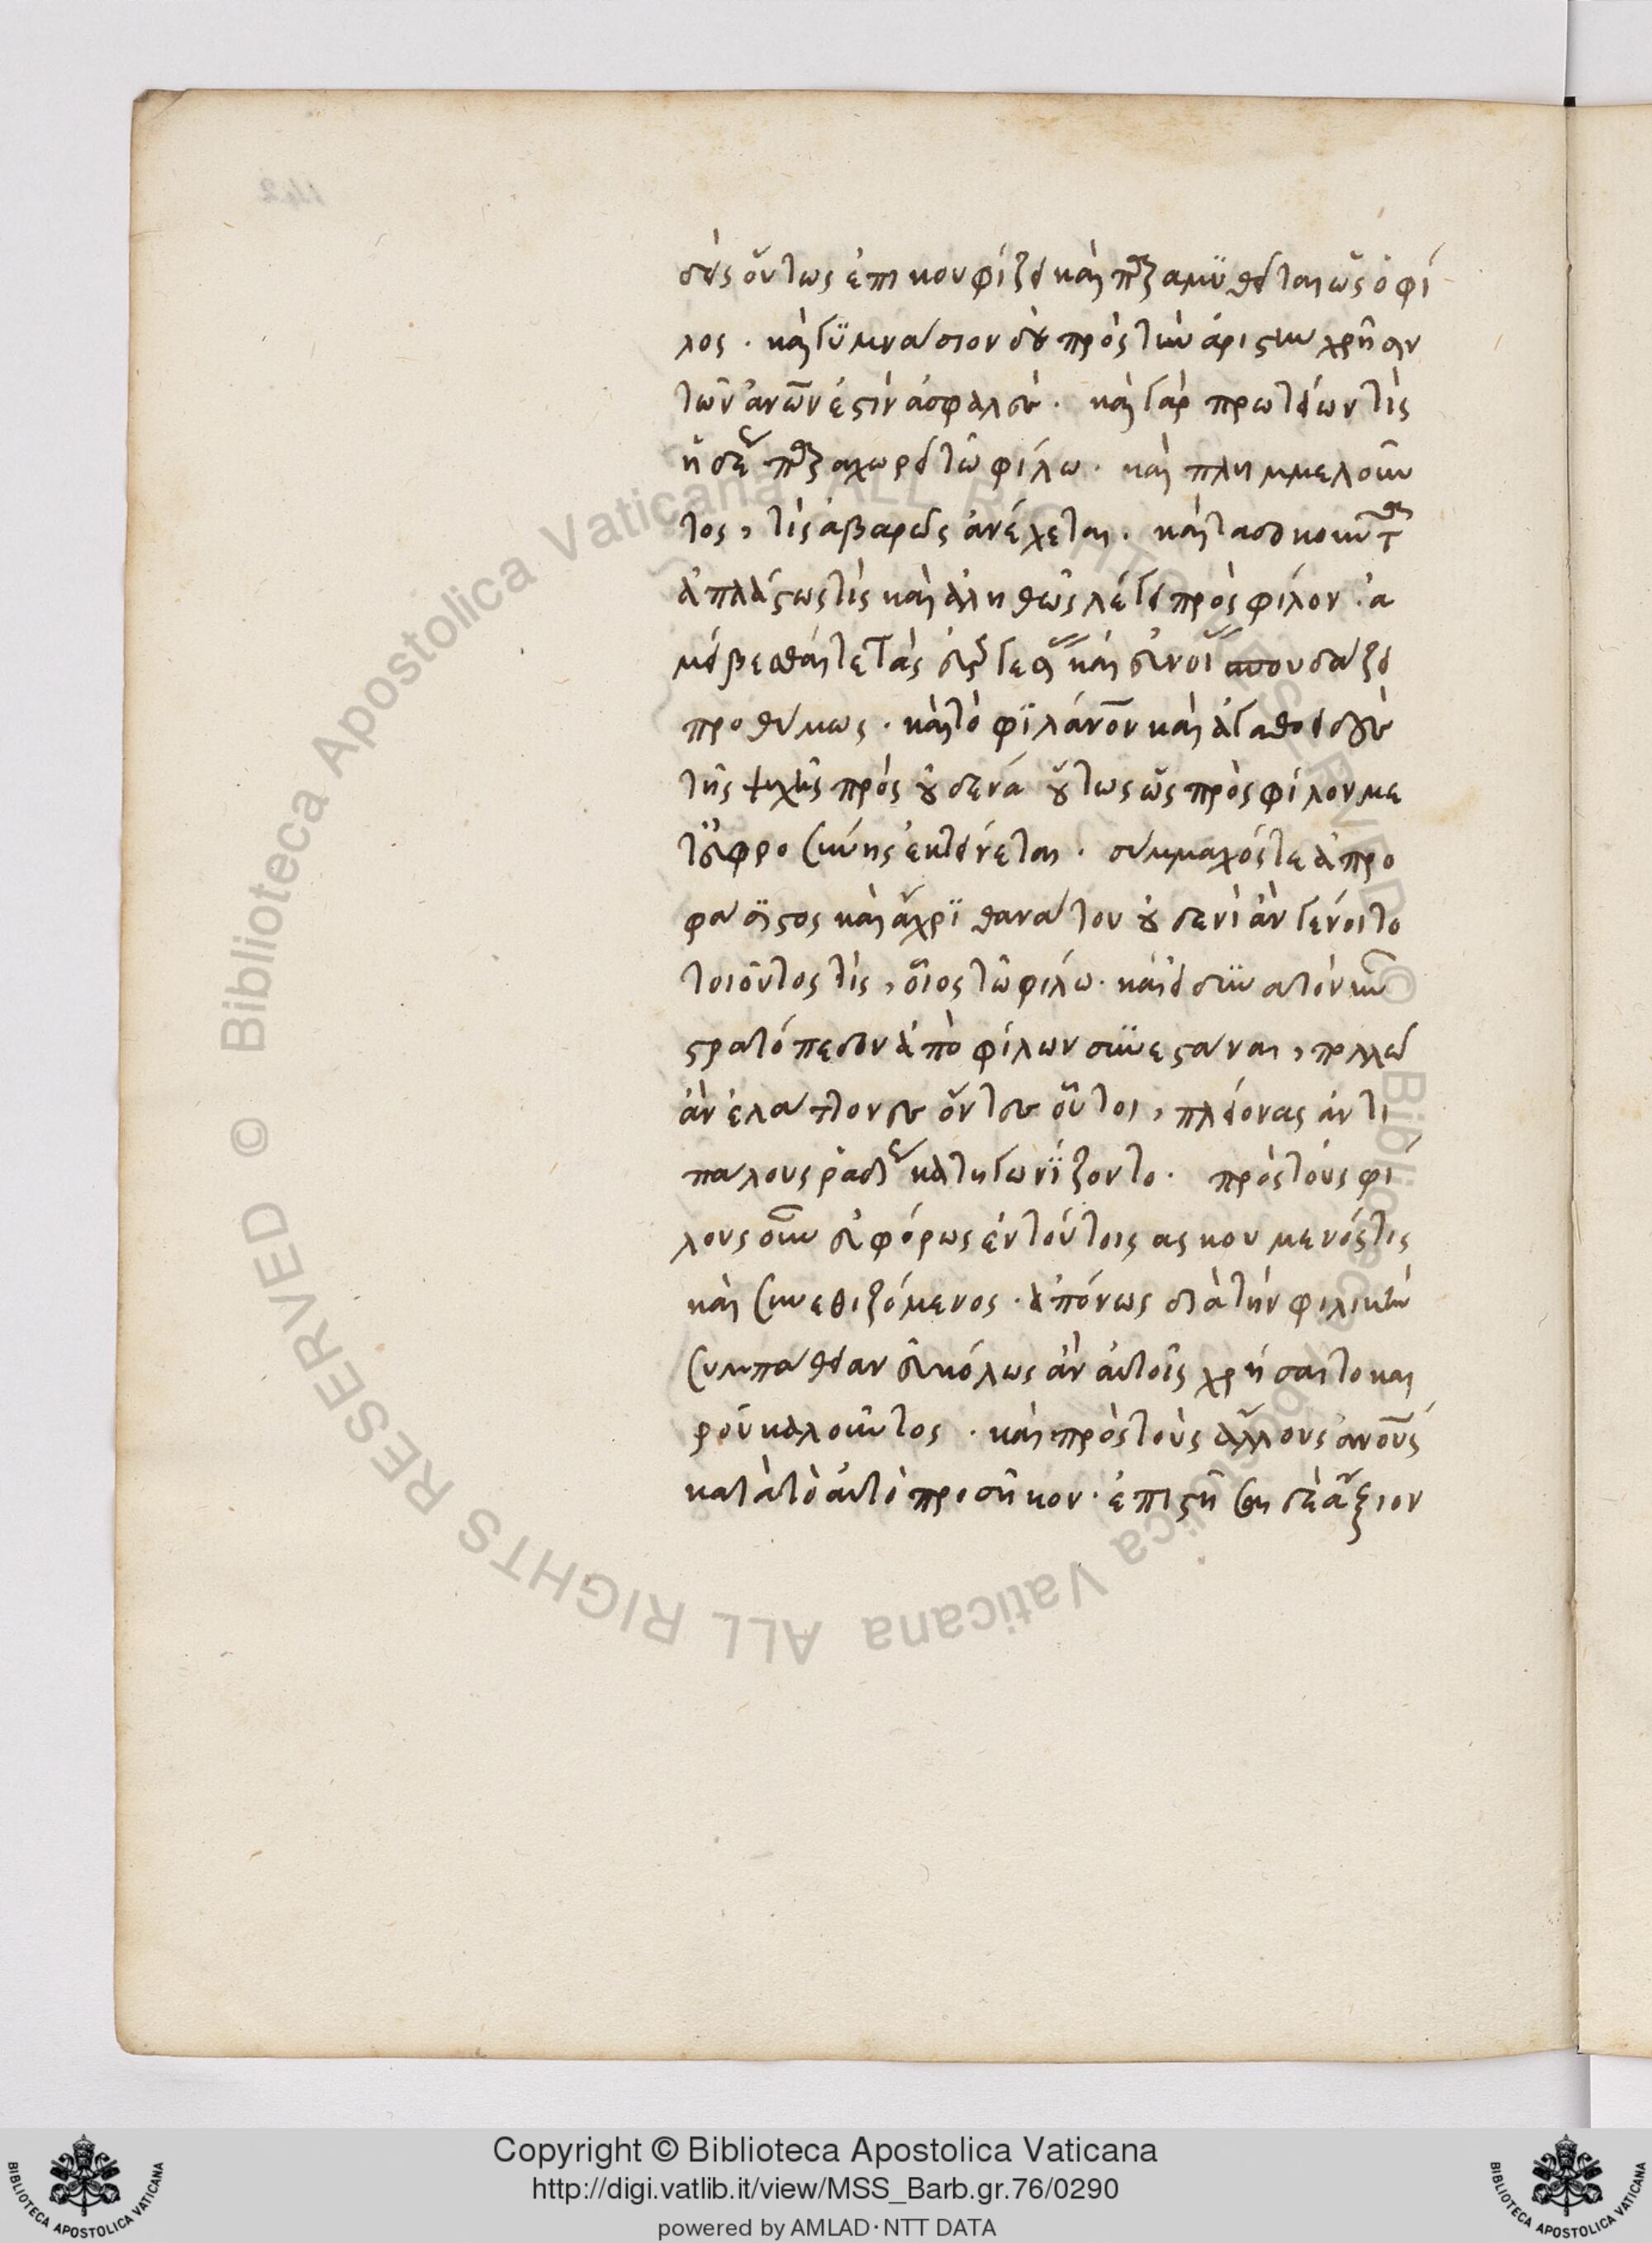 δεὶς οὕτως ἐπικουφίζει καὶ παραμυθεῖται ὡς ὁ φί
λος. καὶ γυμνάσιον δὲ πρὸς τὴν ἀρίστην χρῆσιν
τῶν ἀνων ἐστὶν ἀσφαλὲς. καὶ γὰρ πρωτείων τὶς
ἡδέως παραχωρεῖ τῷ φίλῳ. καὶ πλημμελοῦν
τος, τὶς ἀβαρῶς ἀνέχεται. καὶ τὰ δοκοῦντα
ἀπλάστως τὶς καὶ ἀληθῶς λέγει πρὸς φίλον. ἀ
μείβεσθαί τε τὰς εὐεργεσίας καὶ εὐνοίας σπουδάζει
προθύμως. καὶ τὸ φιλάνον καὶ ἀγαθοειδὲς
τῆς ψυχῆς πρὸς οὐδένα οὕτως ὡς πρὸς φίλον με
τ' εὐφροσύνης ἐκτείνεται. σύμμαχός τε ἀπρο
φάσιστος καὶ ἄχρι θανάτου οὐδενὶ ἂν γένοιτο
τοιοῦτος τὶς, οἷος τῷ φίλῳ. καὶ εἰ δυνατὸν ἦν
στρατόπεδον ἀπὸ φίλων συνεστάναι, πολλῷ
ἂν ἐλάττονες ὄντες οὗτοι, πλείονας ἀντι
πάλους ῥαδίως κατηγωνίζοντο. πρὸς τοὺς φί
λους οὖν διαφόρως ἐν τούτοις ασκουμενός τις
καὶ συνεθιζόμενος. ἀπόνως διὰ τὴν φιλικὴν
συμπάθειαν εὐκόλως ἂν αὐτοῖς χρήσαιτο και
ροῦ καλοῦντος. καὶ πρὸς τοὺς ἄλλους ἀνους
κατὰ τὸ αὐτὸ προσῆκον. ἐπιστῆσαι δὲ ἄξιον
Copyright © Biblioteca Apostolica Vaticana
http://digi.vatlib.it/view/MSS_Barb.gr.76/0290
powered by AMLAD·NTT DATA